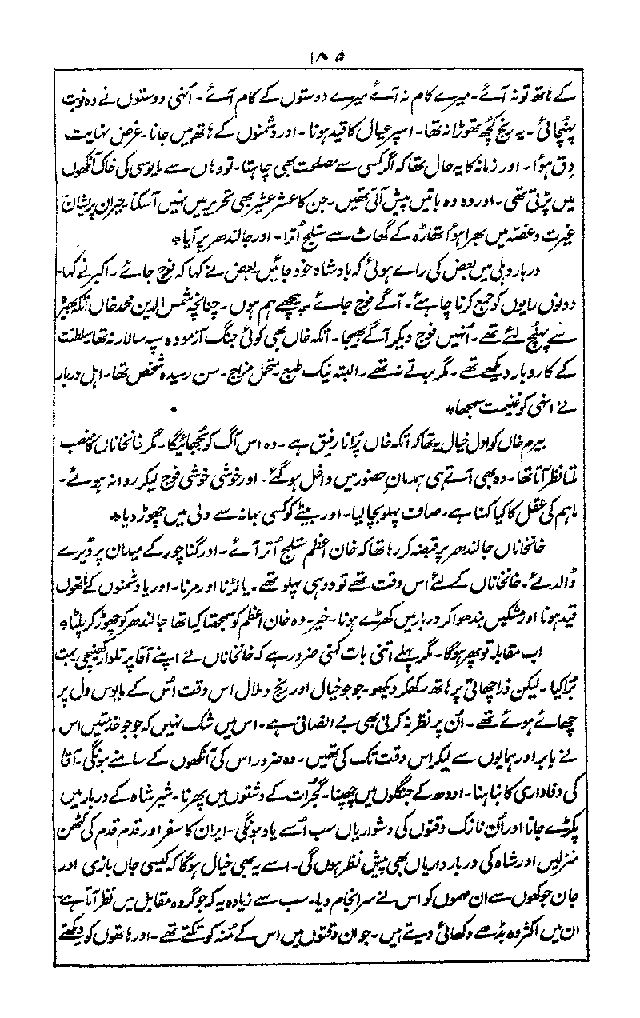 ۱۸۵
کے ہاتھ تو نہ آئے۔ میرے کام نہ آئے میرے دوستوں کے کام آئے۔ انہی دوستوں نے وہ نوبت
پہنچائی۔ یہ رنج کچھ تھوڑا نہ تھا۔ اسیر عیال کا قید ہونا۔ اور دشمنوں کے ہاتھ میں جانا۔ غرض نہایت
دق ہؤا۔ اور زمانہ کا یہ حال تھا کہ اگر کسی سے مصلحت بھی چاہتا۔ تو وہاں سے مایوسی کی خاک آنکھوں
میں پڑتی تھی۔ اور وہ وہ باتیں پیش آتی تھیں۔ جن کا عشر عشیر بھی تحریر میں نہیں آ سکتا۔ حیران پریشان
غیرت و غصّہ میں بھرا ہؤا تھاڑہ کے گھاٹ سے ستلج اُترا۔ اور جالندھر پر آیا *
دربار دہلی میں بعض کی رائے ہوئی کہ بادشاہ خود جائیں بعض نے کہا کہ فوج جائے۔ اکبر نے کہا۔
دونوں رایوں کو جمع کرنا چاہئے۔ آگے فوج جائے۔ پیچھے ہم ہوں۔ چنانچہ شمس الدین محمد خاں اتکہ بھیرہ
سے پہنچ لئے تھے۔ اُنہیں فوج دیکر آگے بھیجا۔ اتکہ خاں بھی کوئی جنگ آزمودہ سپہ سالار نہ تھا۔ سلطنت
کے کاروبار دیکھے تھے۔ مگر برتے نہ تھے۔ البتہ نیک طبع۔ متحمل مزاج۔ سن رسیدہ شخص تھا۔ اہل دربار
نے اسی کو غنیمت سمجھا *
بیرم خاں کو اوّل خیال یہ تھا کہ اتکہ خاں پُرانا رفیق ہے۔ وہ اس آگ کو بُجھائیگا۔ مگر خانخاناں کا منصب
ملتا نظر آتا تھا۔ وہ بھی آتے ہی ہمدمانِ حضور میں داخل ہو گئے۔ اور خوشی خوشی فوج لیکر روانہ ہوئے۔
ماہم کی عقل کا کیا کہنا ہے۔ صاف پہلو بچا لیا۔ اور بیٹے کو کسی بہانہ سے دلّی میں چھوڑ دیا *
خانخاناں جالندھر پر قبضہ کر رہا تھا کہ خان اعظم ستلج اُتر آئے۔ اور گناچور کے میدان پر ڈیرے
ڈالدئے۔ خانخاناں کے لئے اس وقت تھے تو دو ہی پہلو تھے۔ یا لڑنا اور مرنا۔ اور یا دشمنوں کے ہاتھوں
قید ہونا اور مشکیں بندھوا کر دربار میں کھڑے ہونا۔ خیر۔ وہ خان اعظم کو سمجھتا کیا تھا جالندھر کو چھوڑ کر پلٹا *
اب مقابلہ تو پھر ہوگا۔ مگر پہلے اتنی بات کہنی ضرور ہے کہ خانخاناں نے اپنے آقا پر تلوار کھینچی بہت
بُرا کیا۔ لیکن ذرا چھاتی پر ہاتھ رکھکر دیکھو۔ جو جو خیال اور رنج و ملال اس وقت اُس کے مایوس دل پر
چھائے ہوئے تھے۔ اُن پر نظر نہ کرنی بھی بے انصافی ہے۔ اس میں شک نہیں کہ جو جو خدمتیں اس
نے بابر اور ہمایوں سے لیکر اس وقت تک کی تھیں۔ وہ ضرور اس کی آنکھوں کے سامنے ہونگی۔ آقا
کی وفاداری کا نباہنا۔ اودھ کے جنگلوں میں چھپنا۔ گجرات کے دشتوں میں پھرنا۔ شیر شاہ کے دربار میں
پکڑے جانا اور اُن نازک وقتوں کی دشواریاں سب اُسے یاد ہونگی۔ ایران کا سفر اور قدم قدم کی کٹھن
منزلیں اور شاہ کی دربار داریاں بھی پیش نظر ہوں گی۔ اسے یہ بھی خیال ہوگا کہ کیسی جاں بازی اور
جان جوکھوں سے ان مہموں کو اس نے سرانجام دیا۔ سب سے زیادہ یہ کہ جو گروہ مقابل میں نظر آتا ہے
ان میں اکثر وہ بڈھے دکھائی دیتے ہیں۔ جو ان وقتوں میں اس کے مُنہ کو تکتے تھے۔ اور ہاتھوں کو دیکھتے